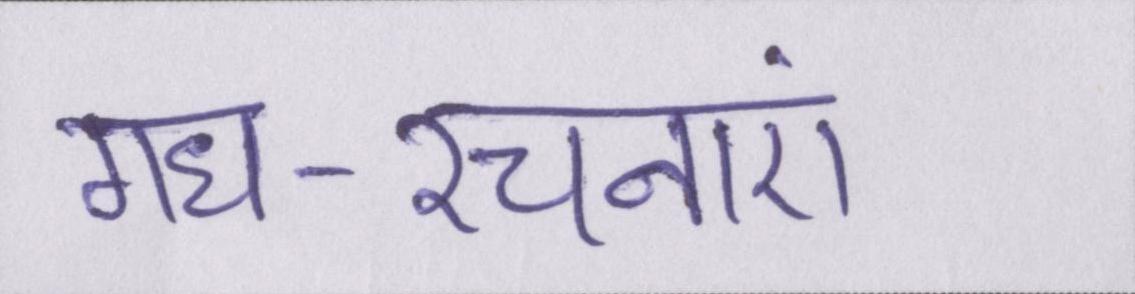 गद्य-रचनाएं